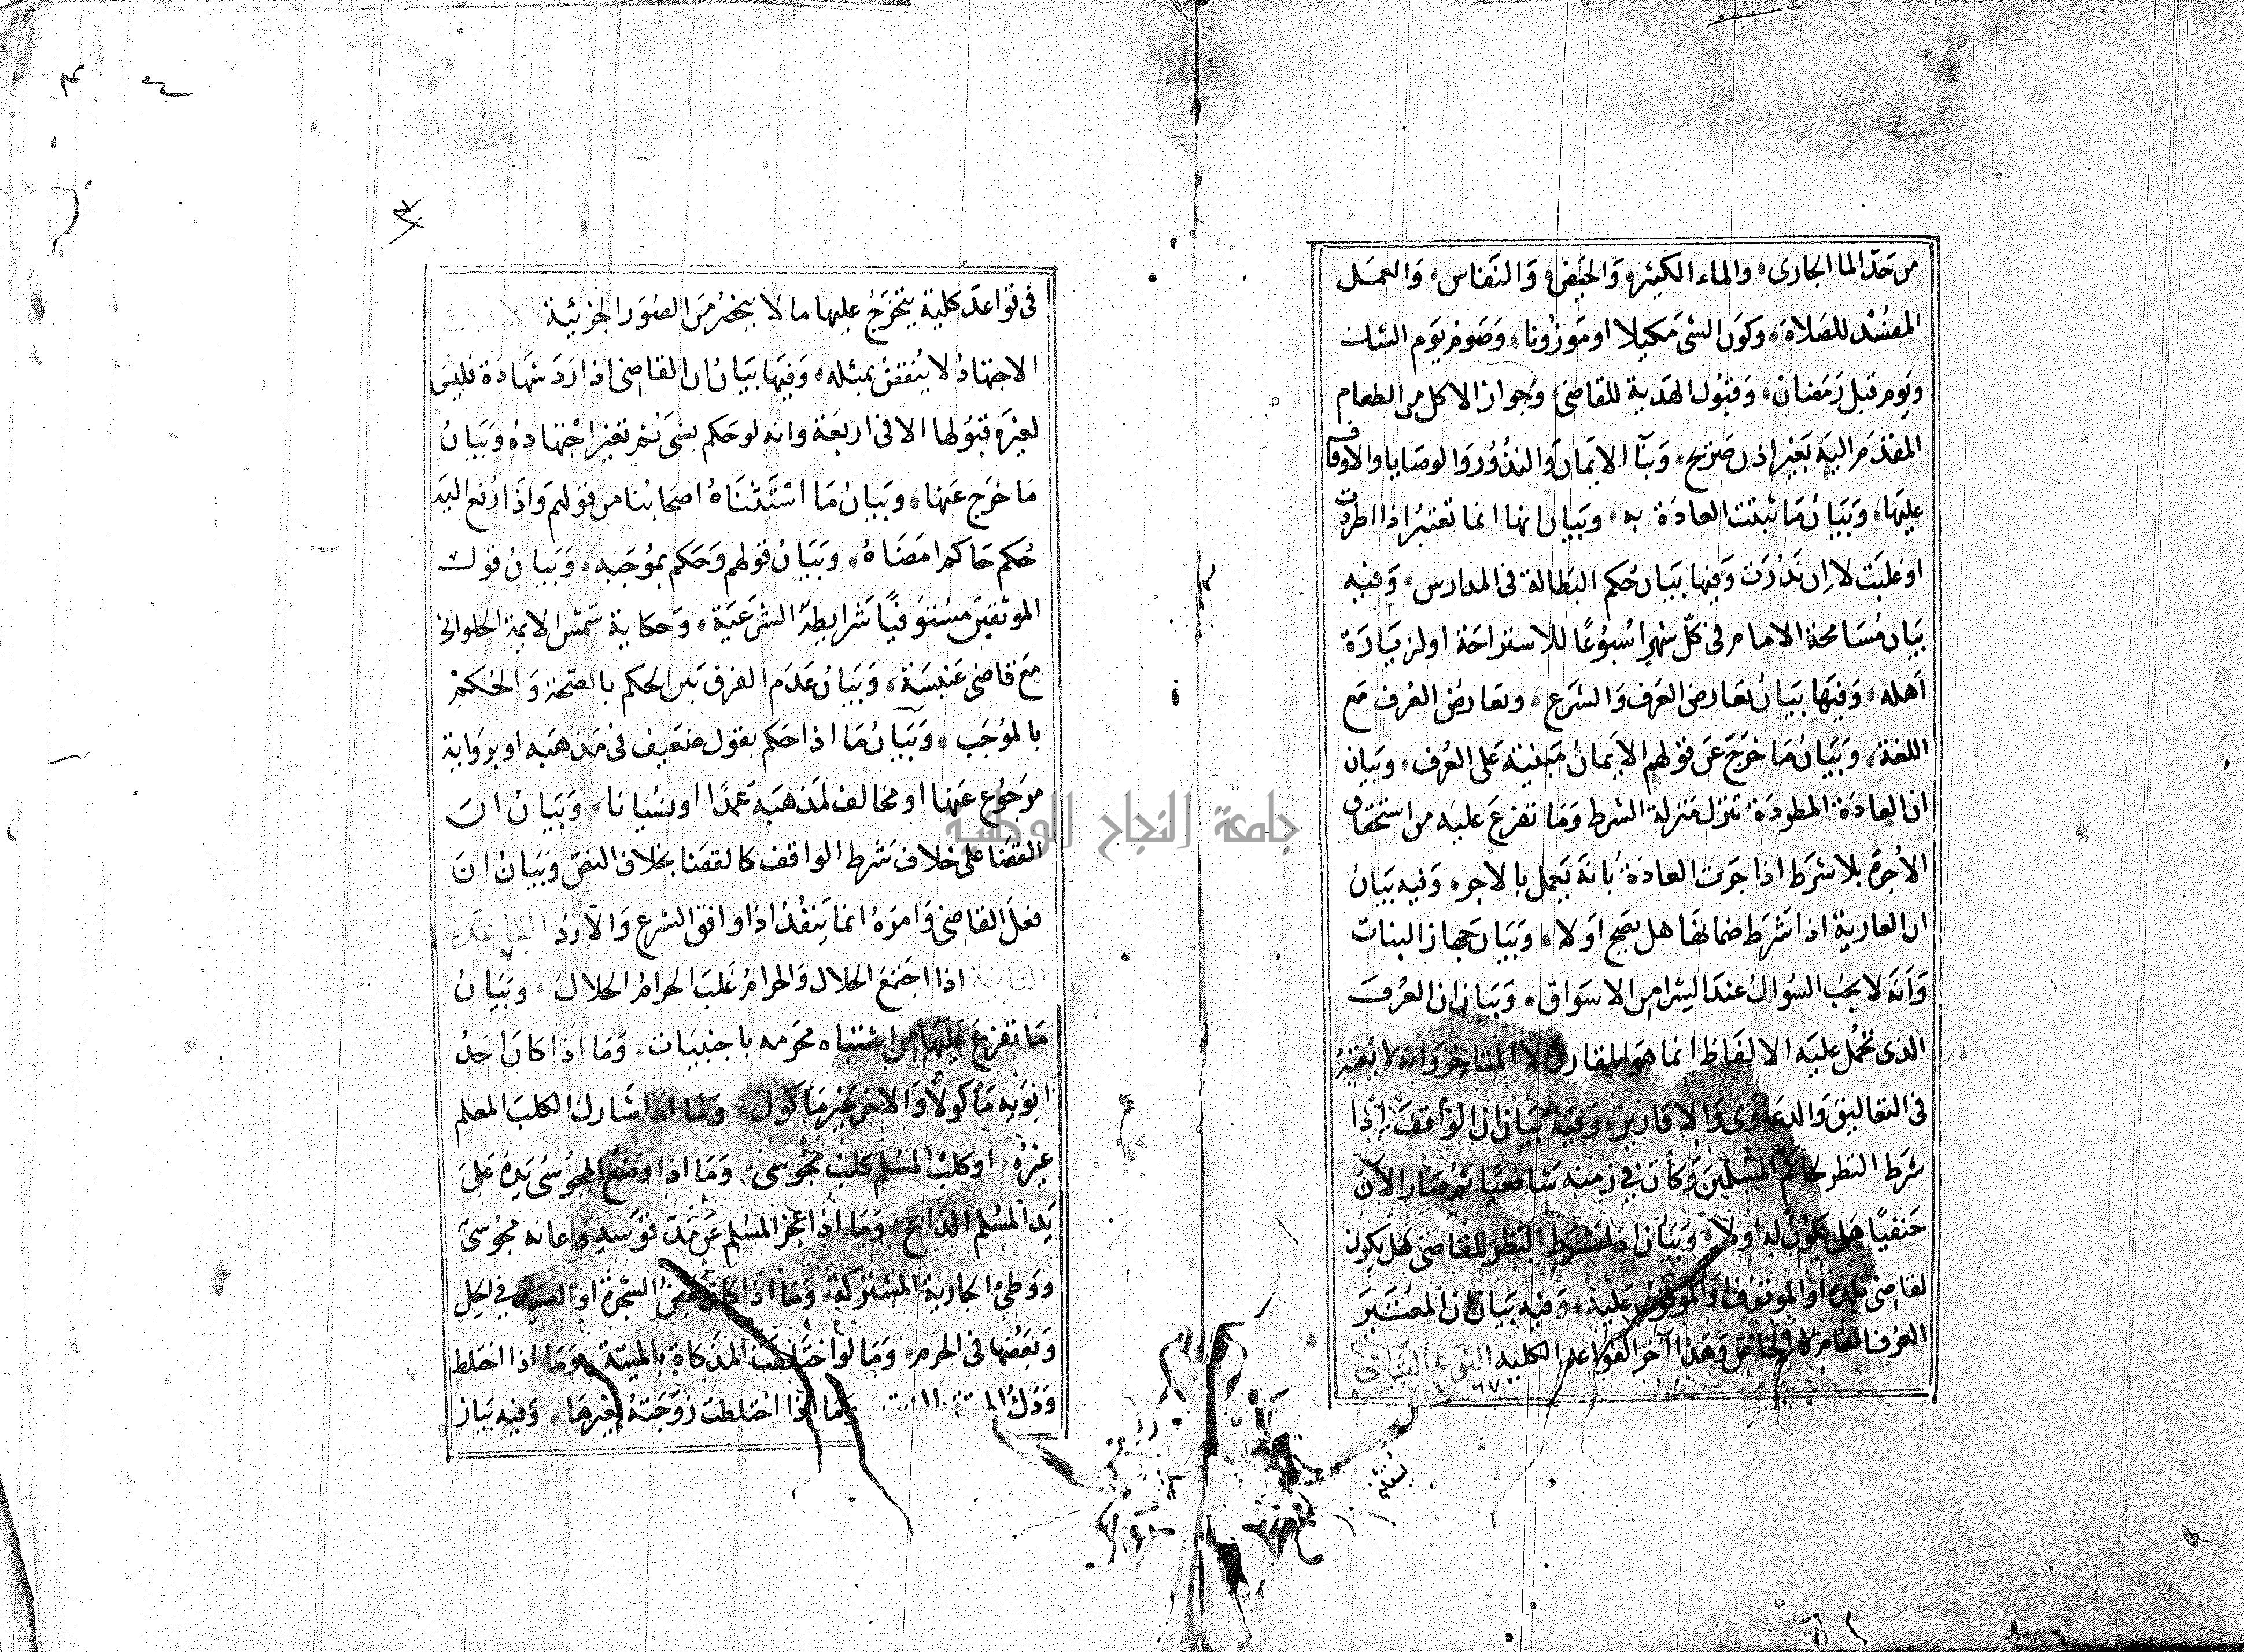 من حد الما الجارى والماء الكثير والحيض والنفاس والعمل
المفسد للصلاة وكون الشى مكيلا او موزونا وصوم يوم الشك
ويوم قبل رمضان وقبول الهدية للقاضى وجواز الاكل من الطعام
المقدم اليه بغير اذن صريح وبنآ الايمان والنذور والوصايا والاوقاف
عليها وبيان ما ثبتت العادة به وبيان انها انما تعتبر اذا اطردت
او غلبت لا ان ندرت وفيها بيان حكم البطالة فى المدارس وفيه
بيان مسامحة الامام فى كل شهر اسبوعا للاستراحة او لزيارة
اهله وفيها بيان تعارض العرف والشرع وتعارض العرف مع
اللغة وبيان ما خرج عن قولهم الايمان مبنية على العرف وبيان
ان العادة المطردة تنزل منزلة الشرط وما تفرع عليه من استحقاق
الأجرة بلا شرط اذا جرت العادة بانه يعمل بالاجر وفيه بيان
ان العارية اذا شرط ضمانها هل يصح اولا وبيان جهاز البنات
وانه لا يجب السوال عند الشرا من الاسواق وبيان ان العرف
الذى تحمل عليه الالفاظ انما هو المقارن لا المتاخر وانه لا يعتبر
فى التعاليق والدعاوى والاقارير وفيه بيان ان الواقف اذا
شرط النظر لحاكم المسلمين وكان فى زمنه شافعيا ثم صار الآن
حنفيا هل يكون له اولا وبيان اذا شرط النظر للقاضى هل يكون
لقاضى بلده او الموقوف والموقوف عليه وفيه بيان ان المعتبر
العرف العام لا الخاص وهذا آخر القواعد الكلية النوع الثانى
فى قواعد كلية يتخرج عليها ما لا ينحصر من الصور الجزئية الاولى
الاجتهاد لا ينقض بمثله وفيها بيان ان القاضى اذا رد شهادة فليس
لغيره قبولها الا فى اربعة وانه لو حكم بشى ثم تغير اجتهاده وبيان
ما خرج عنها وبيان ما استثناه اصحابنا من قولهم واذا رفع اليه
حكم حاكم امضاه وبيان قولهم وحكم بموجبه وبيان قول
الموثقين مستوفيا شرايطه الشرعية وحكاية شمس الايمة الحلوانى
مع قاضى عنبسة وبيان عدم الفرق بين الحكم بالصحة والحكم
بالموجب وبيان ما اذا حكم بقول ضعيف فى مذهبه او برواية
مرجوع عنها او مخالف لمذهبه عمدا او نسيانا وبيان ان
القضا على خلاف شرط الواقف كالقضا بخلاف النص وبيان ان
فعل القاضى وامره انما ينفذ اذا وافق الشرع والا رد القاعدة
الثانية اذا اجتمع الحلال والحرام غلب الحرام الحلال وبيان
ما تفرع عليها من اشتباه محرمه باجنبيات وما اذا كان احد
ابويه مأكولا والاخر غير مأكول وما اذا شارك الكلب المعلم
غيره او كلب المسلم كلب مجوسى وما اذا وضع المجوسى يده على
يد المسلم الذابح وما اذا عجز المسلم عن مد قوسه فاعانه مجوسى
ووطئ الجارية المشتركة وما اذا كان بعض الشجرة او الصيد فى الحل
وبعضها فى الحرم وما لو اختلطت المذكاة بالميتة وما اذا اختلط
ودك الميتة وما اذا اختلطت زوجته بغيرها وفيه بيان
جامعة النجاح الوطنية